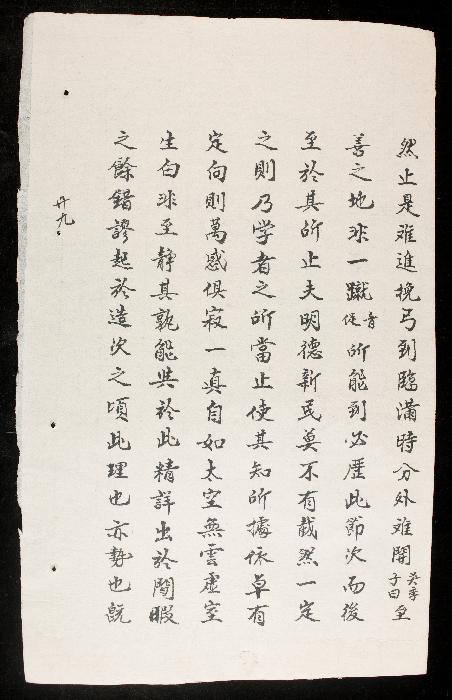 然止是难進挽弓到臨滿時分外难開吳季子曰至
善之地非一蹴音促所能到必歷此節次而後
至於其所止夫明德新民莫不有截然一定
之則乃学者之所當止使其知所據依卓有
定向則萬惑俱寂一真自如太空無雲虛室
生白非至靜其孰能與於此精詳出於閒暇
之餘錯謬起於造次之頃此理也亦勢也旣
廿九